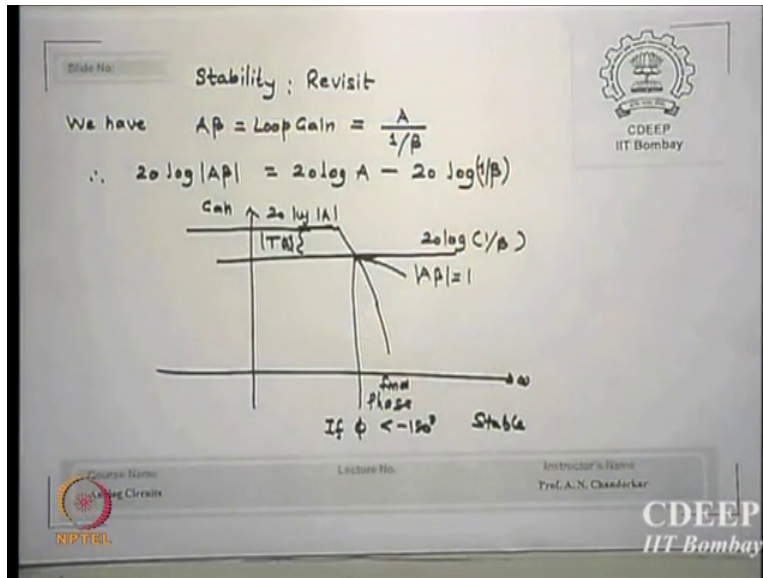 Slide No:
Stability : Revisit
CDEEP
IIT Bombay
We have Aβ = Loop Gain = A / 1/β
∴ 20 log |Aβ| = 20 log A - 20 log (1/β)
Gain 20 log |A|
|TB|{ 20 log (1/β)
|Aβ| = 1
ω
find
Phase
If φ < -180° Stable
Course Name Lecture No. Instructor's Name
Analog Circuits Prof. A. N. Chandorkar
NPTEL
CDEEP
IIT Bombay